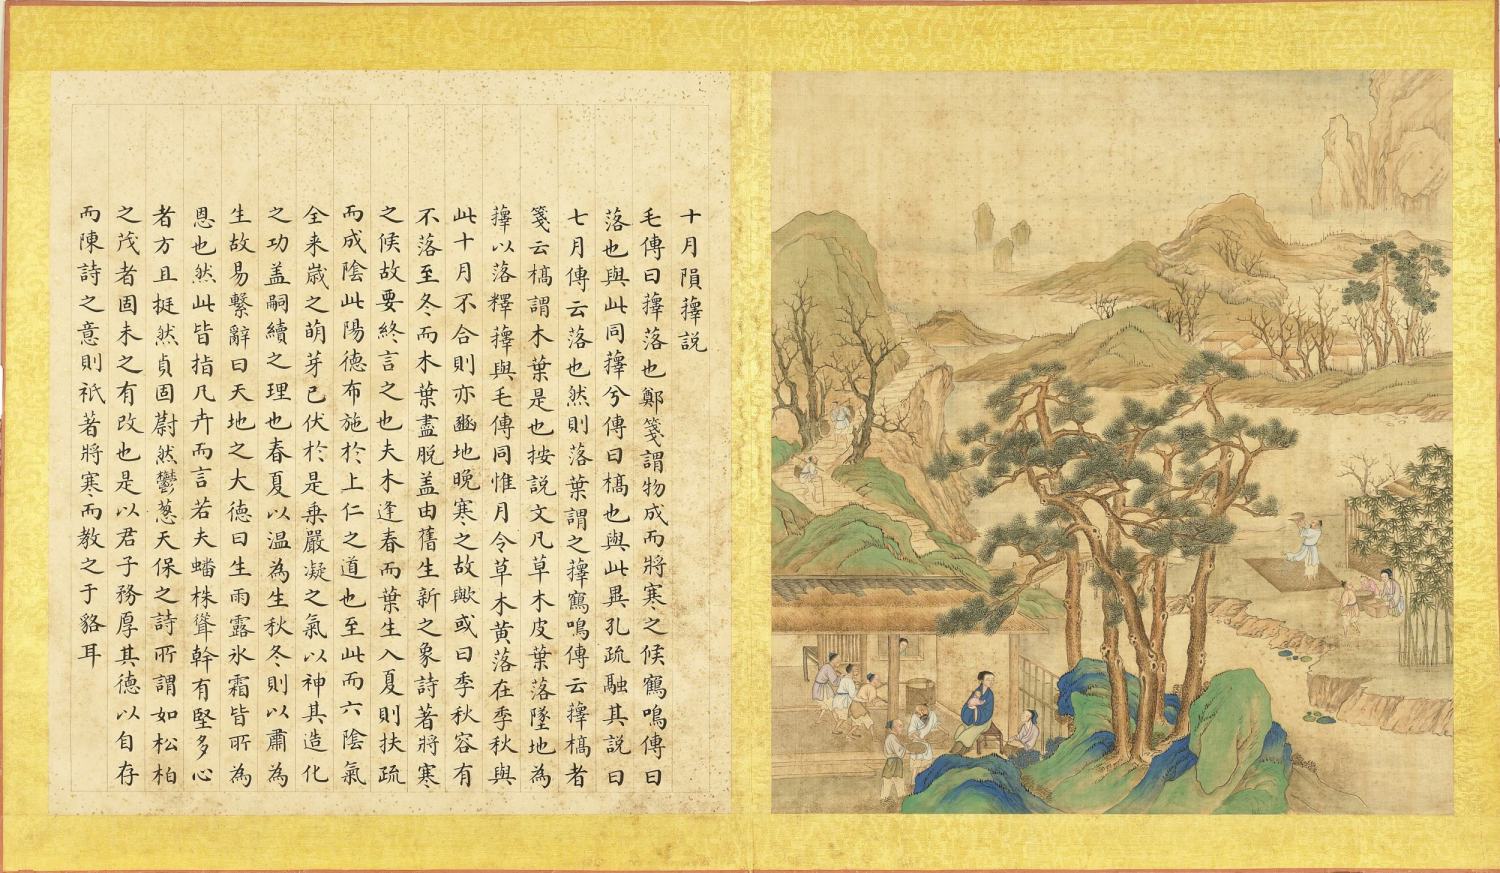 十月隕蘀說
毛傳曰蘀落也鄭箋謂物成而將寒之候鶴鳴傳曰
落也與此同蘀兮傳曰槁也與此異孔疏融其說曰
七月傳云落也然則落葉謂之蘀鶴鳴傳云蘀槁者
箋云槁謂木葉是也按說文凡草木皮葉落墜地為
蘀以落釋蘀與毛傳同惟月令草木黃落在季秋與
此十月不合則亦豳地晚寒之故歟或曰季秋容有
不落至冬而木葉盡脫盖由舊生新之象詩著將寒
之候故要終言之也夫木逢春而葉生入夏則扶疏
而成陰此陽德布施於上仁之道也至此而六陰氣
全来嵗之萌芽已伏於是乗嚴凝之氣以神其造化
之功盖嗣續之理也春夏以温為生秋冬則以肅為
生故易繫辭曰天地之大德曰生雨露氷霜皆所為
恩也然此皆指凡卉而言若夫蟠株聳幹有堅多心
者方且挺然貞固蔚然鬱葱天保之詩所謂如松柏
之茂者固未之有改也是以君子務厚其德以自存
而陳詩之意則祇著將寒而教之于貉耳